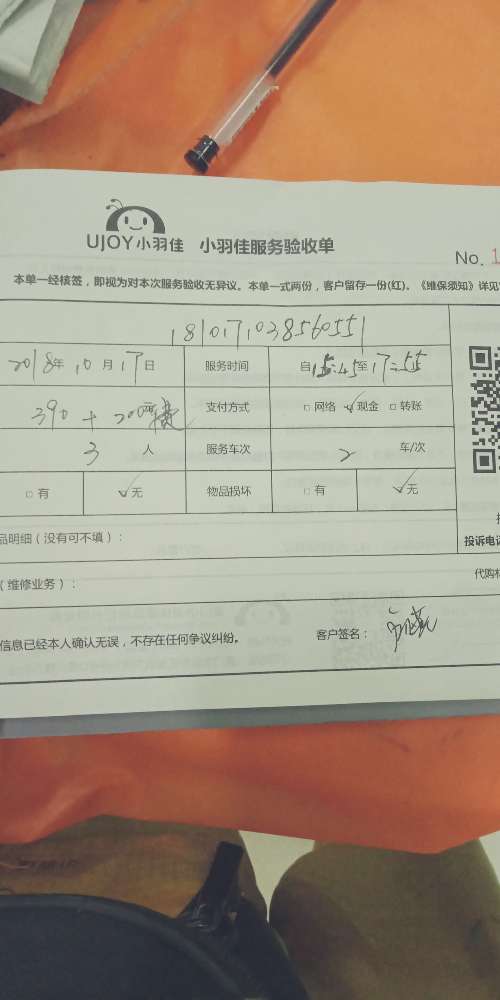 UJOY小羽佳 小羽佳服务验收单
No. 1
本单一经核签，即视为对本次服务验收无异议。本单一式两份，客户留存一份(红)。《维保须知》详见
1810171038560551
2018年 10月 17日 服务时间 自15:45至17:55
390 + 200 支付方式 □网络 ✓现金 □转账
3 人 服务车次 2 车/次
□有 ✓无 物品损坏 □有 ✓无
品明细（没有可不填）：
投诉电
（维修业务）： 代购材
信息已经本人确认无误，不存在任何争议纠纷。 客户签名：